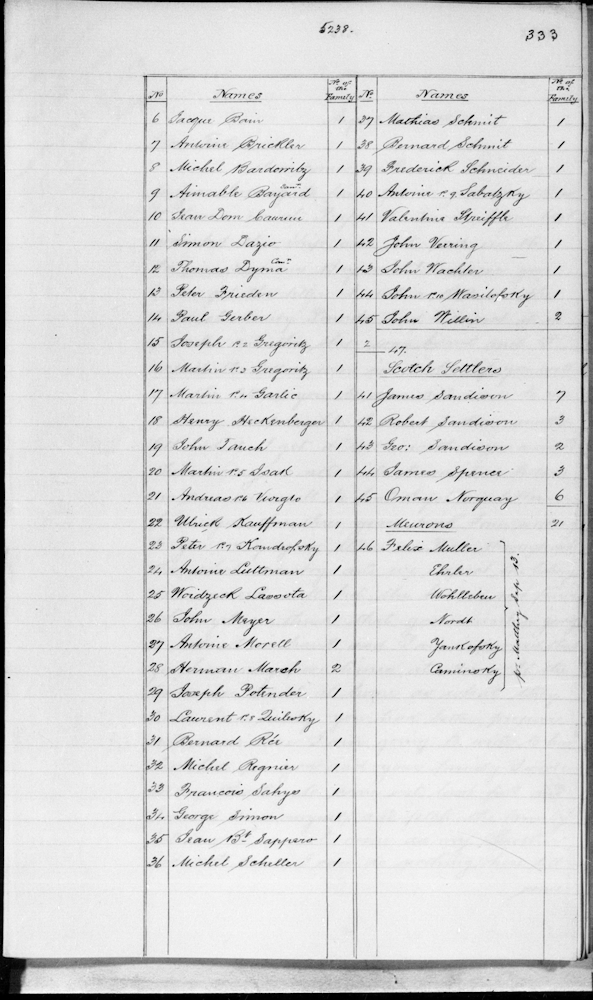 5238.
333
No Names No of the Family
6 Jacque Bain 1
7 Antoine Brickler 1
8 Michel Bardowitz 1
9 Aimable Bayard Can: 1
10 Jean Dom Caureur 1
11 Simon Dazio 1
12 Thomas Dyma Can: 1
13 Peter Frieden 1
14 Paul Gerber 1
15 Joseph No 2 Gregoritz 1
16 Martin No 3 Gregoritz 1
17 Martin No 4 Garlic 1
18 Henry Heckenberger 1
19 John Jauch 1
20 Martin No 5 Isak 1
21 Andreas No 6 1
22 Ulrick Kauffman 1
23 Peter No 7 Kondrofsky 1
24 Antoine Luttman 1
25 Woidzeck Lassota 1
26 John Meyer 1
27 Antoine Morell 1
28 Herman March 2
29 Joseph Polinder 1
30 Laurent No 8 Quilesky 1
31 Bernard Rér 1
32 Michel Regnier 1
33 Francois Sahys 1
34 George Simon 1
35 Jean Bt Sappero 1
36 Michel Scheller 1
No Names No of the Family
37 Mathias Schmit 1
38 Bernard Schmit 1
39 Frederick Schneider 1
40 Antoine No 9 Sabatzky 1
41 Valentine Streiffle 1
42 John Verring 1
43 John Wachter 1
44 John No 10 Wasilofsky 1
45 John Willin 2
2 47.
Scotch Settlers
41 James Sandison 7
42 Robert Sandison 3
43 Geo: Sandison 2
44 James Spence 3
45 Oman Norquay 6
Meurons 21
46 Felix Muller
Ehrler
Wohlleben
Nordt
Yankofsky
Caminsky
pr Matthey Sep 13.